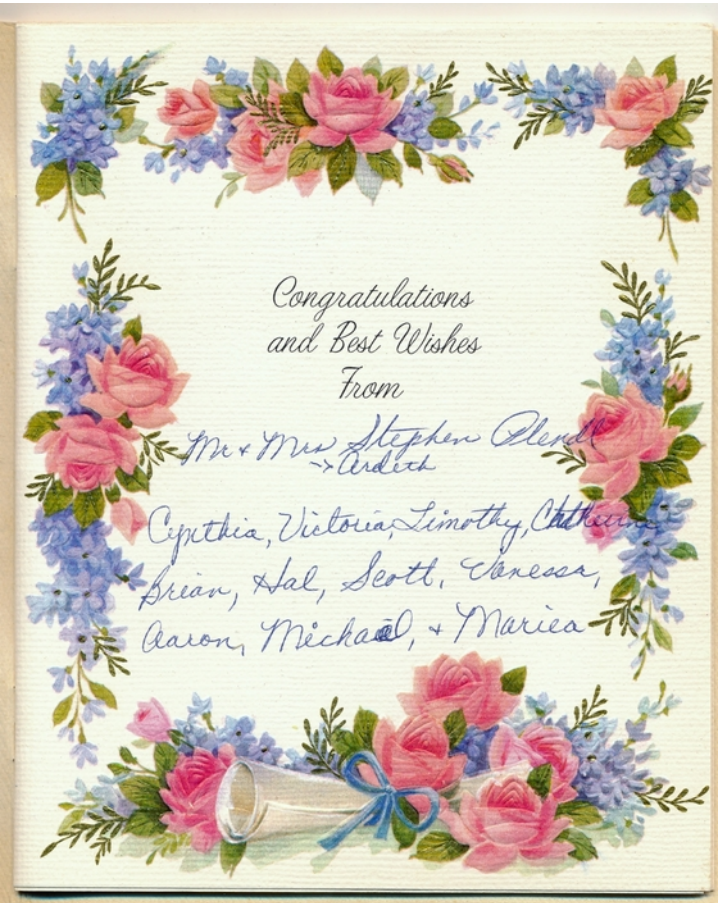 Congratulations
and Best Wishes
From
Mr + Mrs Stephen Plendl
→ Ardeth
Cynthia, Victoria, Timothy, Catherine
Brian, Hal, Scott, Vanessa,
Aaron, Michael, + Marica